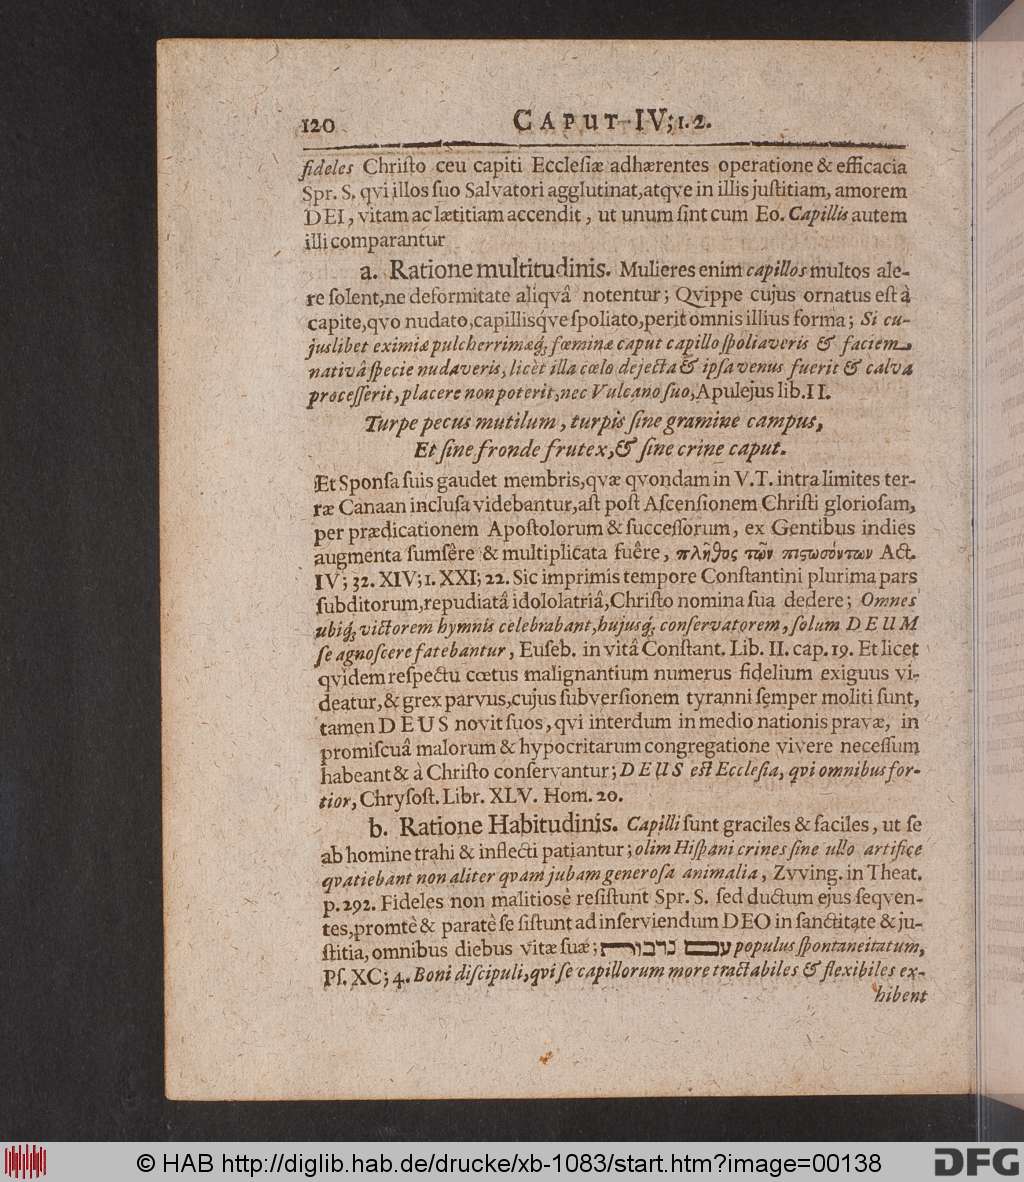 120 CAPUT IV; 1. 2.
fideles Chriſto ceu capiti Eccleſiæ adhærentes operatione & efficacia
Spr. S. qvi illos ſuo Salvatori agglutinat, atqve in illis juſtitiam, amorem
DEI, vitam ac lætitiam accendit, ut unum ſint cum Eo. Capillis autem
illi comparantur
a. Ratione multitudinis. Mulieres enim capillos multos ale-
re ſolent, ne deformitate aliqvâ notentur; Qvippe cujus ornatus eſt à
capite, qvo nudato, capillisq́ve ſpoliato, perit omnis illius forma; Si cu-
juslibet eximiæ pulcherrimæq́; fœminæ caput capillo ſpoliaveris & faciem
nativâ ſpecie nudaveris, licèt illa cœlo dejecta & ipſa venus fuerit & calva
proceſſerit, placere non poterit, nec Vulcano ſuo, Apulejus lib. II.
Turpe pecus mutilum, turpis ſine gramine campus,
Et ſine fronde frutex, & ſine crine caput.
Et Sponſa ſuis gaudet membris, qvæ qvondam in V. T. intra limites ter-
ræ Canaan incluſa videbantur, aſt poſt Aſcenſionem Chriſti glorioſam,
per prædicationem Apoſtolorum & ſucceſſorum, ex Gentibus indies
augmenta ſumſêre & multiplicata fuêre, πλῆθος τῶν πιςωσόντων Act.
IV; 32. XIV; 1. XXI; 22. Sic imprimis tempore Conſtantini plurima pars
ſubditorum, repudiatâ idololatriâ, Chriſto nomina ſua dedere; Omnes
ubiq́; victorem hymnis celebrabant, hujusq́; conſervatorem, ſolum DEUM
ſe agnoſcere fatebantur, Euſeb. in vitâ Conſtant. Lib. II. cap. 19. Et licet
qvidem reſpectu cœtus malignantium numerus fidelium exiguus vi-
deatur, & grex parvus, cujus ſubverſionem tyranni ſemper moliti ſunt,
tamen DEUS novit ſuos, qvi interdum in medio nationis pravæ, in
promiſcuâ malorum & hypocritarum congregatione vivere neceſſum
habeant & à Chriſto conſervantur; DEUS eſt Eccleſia, qvi omnibus for-
tior, Chryſoſt. Libr. XLV. Hom. 20.
b. Ratione Habitudinis. Capilli ſunt graciles & faciles, ut ſe
ab homine trahi & inflecti patiantur; olim Hiſpani crines ſine ullo artifice
qvatiebant non aliter qvam jubam generoſa animalia, Zvving. in Theat.
p. 292. Fideles non malitiosè reſiſtunt Spr. S. ſed ductum ejus ſeqven-
tes, promtè & paratè ſe ſiſtunt ad inſerviendum DEO in ſanctitate & ju-
ſtitia, omnibus diebus vitæ ſuæ; עם נדבורת populus ſpontaneitatum,
Pſ. XC; 4. Boni diſcipuli, qvi ſe capillorum more tractabiles & flexibiles ex-
hibent
© HAB http://diglib.hab.de/drucke/xb-1083/start.htm?image=00138
DFG